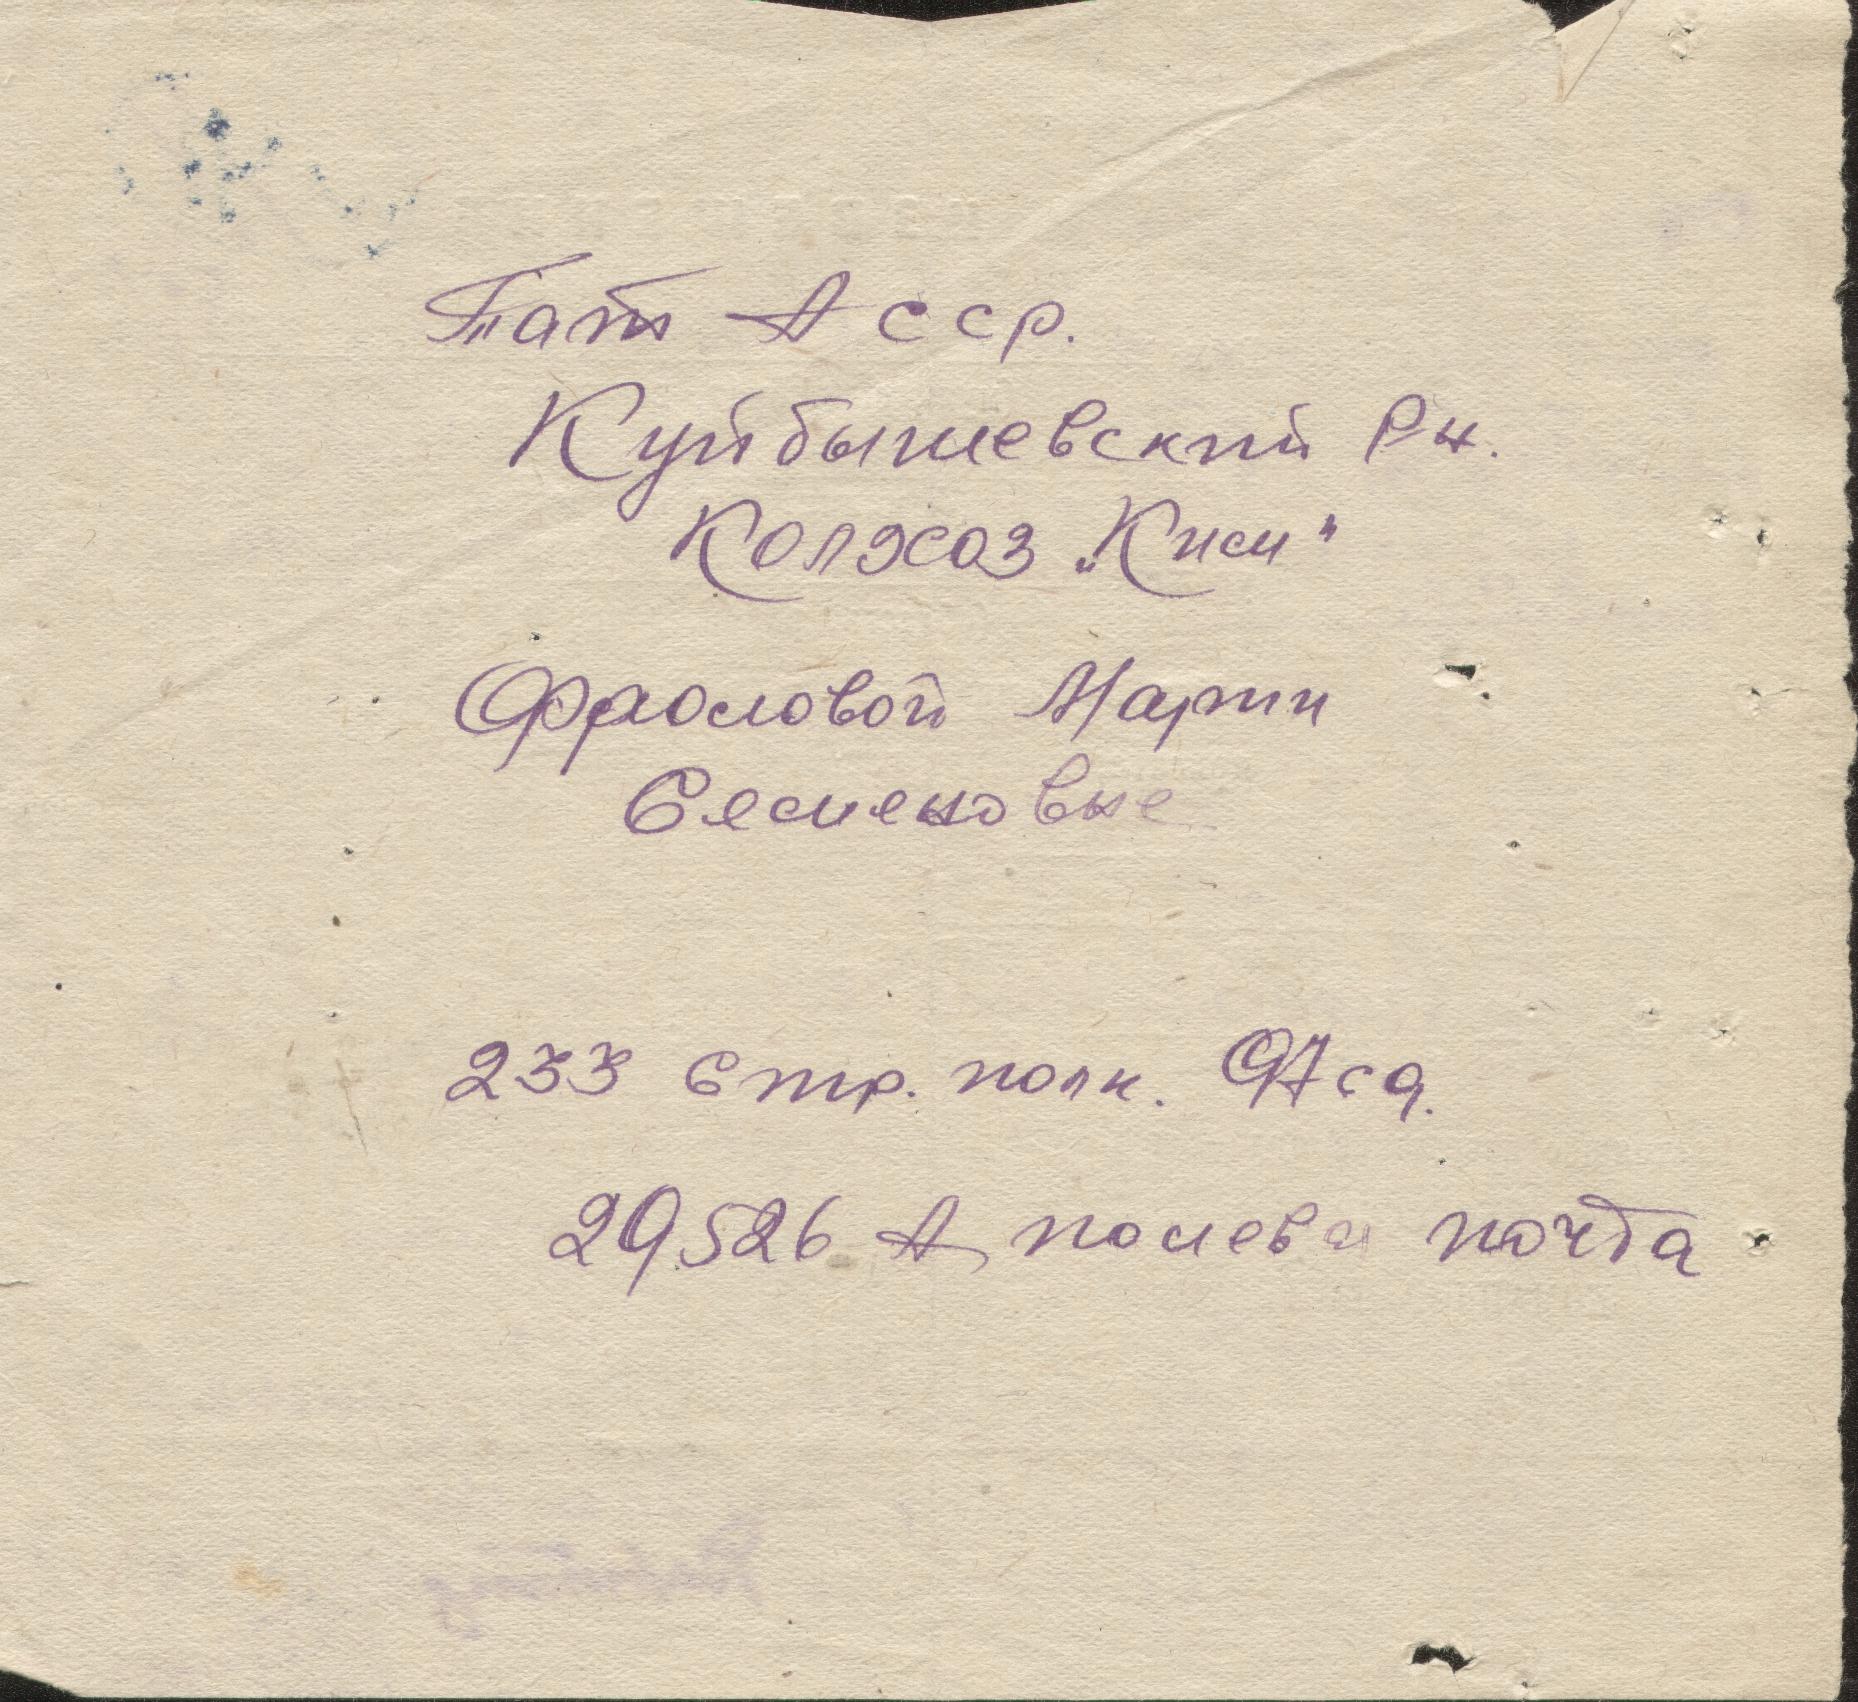 Тат АССР.
Куйбышевский Рн.
Колхоз „Ким"
Фроловой Марии
Семеновне
233 Стр. полк. 97 сд.
29526 А полева почта